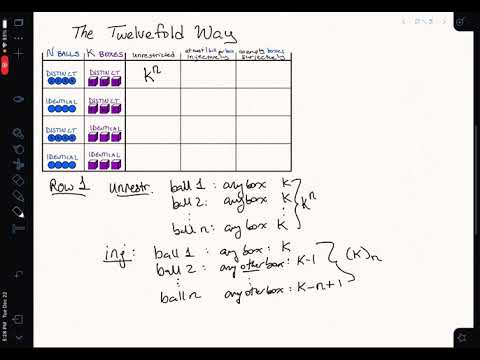 The Twelvefold Way
N BALLS K BOXES unrestricted at most 1 ball per box injectively no empty boxes surjectively
DISTINCT DISTINCT kⁿ
IDENTICAL DISTINCT
DISTINCT IDENTICAL
IDENTICAL IDENTICAL
Row 1 unrestr. ball 1 : any box K
ball 2 : any box K
⋮ ⋮
ball n : any box K
Kⁿ
inj: ball 1 : any box : K
ball 2 : any other box : K-1
⋮ ⋮
ball n any other box : K-n+1
(K)ₙ
5:28 PM Tue Dec 22